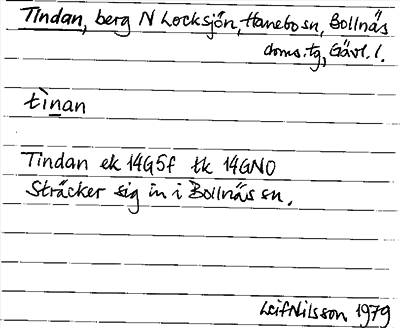 Tindan, berg N Locksjön, Hanebo sn, Bollnäs
doms.tg, Gävl. l.
tìnan
Tindan ek 14G5f tk 14GNO
Sträcker sig in i Bollnäs sn.
Leif Nilsson 1979